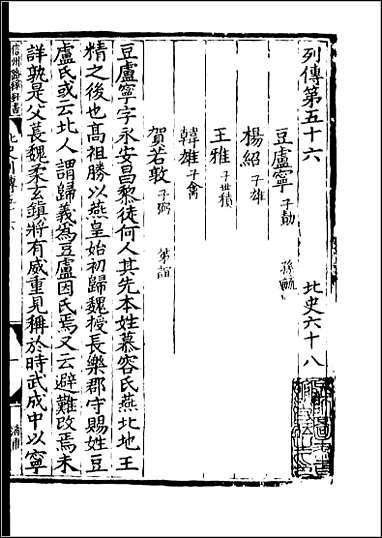 列傳第五十六 北史六十八
豆盧寧 子勣 孫毓
楊紹 子雄
王雅 子世積
韓雄 子禽
賀若敦 子弼 弟誼
豆盧寧字永安昌黎徒何人其先本姓慕容氏燕北地王
精之後也高祖勝以燕皇始初歸魏授長樂郡守賜姓豆
盧氏或云北人謂歸義為豆盧因氏焉又云避難改焉未
詳孰是父萇魏柔玄鎮將有威重見稱於時武成中以寧
信州路儒學
北史列傳五十六
一